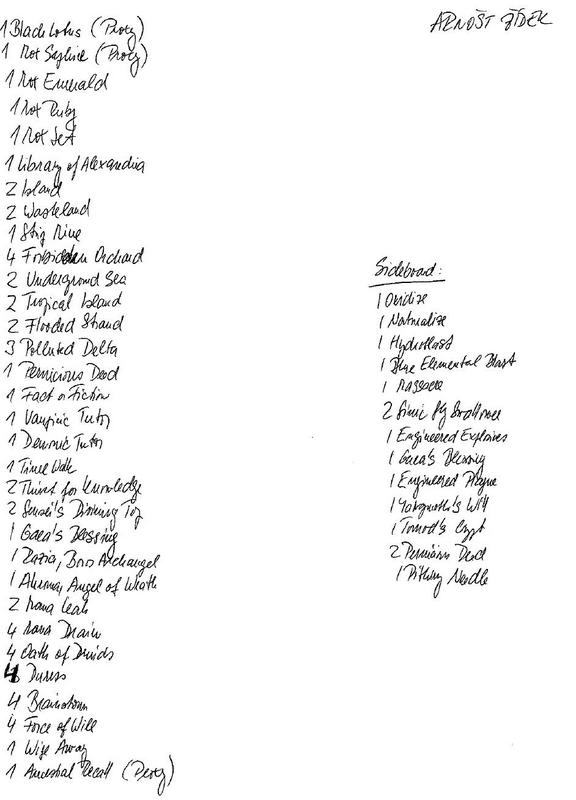 ARNOŠT ZÍDEK
1 Black Lotus (Proxy)
1 Mox Saphire (Proxy)
1 Mox Emerald
1 Mox Ruby
1 Mox Jet
1 Library of Alexandria
2 Island
2 Wasteland
1 Strip Mine
4 Forbidden Orchard
2 Underground Sea
2 Tropical Island
2 Flooded Strand
3 Polluted Delta
1 Pernicious Deed
1 Fact or Fiction
1 Vampiric Tutor
1 Demonic Tutor
1 Time Walk
2 Thirst for Knowledge
2 Sensei's Divining Top
1 Gaea's Blessing
1 Razia, Boros Archangel
1 Akroma, Angel of Wrath
2 Mana Leak
4 Mana Drain
4 Oath of Druids
4 Duress
4 Brainstorm
4 Force of Will
1 Wipe Away
1 Ancestral Recall (Proxy)
Sideboard:
1 Oxidize
1 Naturalize
1 Hydroblast
1 Blue Elemental Blast
1 Massacre
2 Simic Sky Swallower
1 Engineered Explosives
1 Gaea's Blessing
1 Engineered Plague
1 Yawgmoth's Will
1 Tormod's Crypt
2 Pernicious Deed
1 Pithing Needle